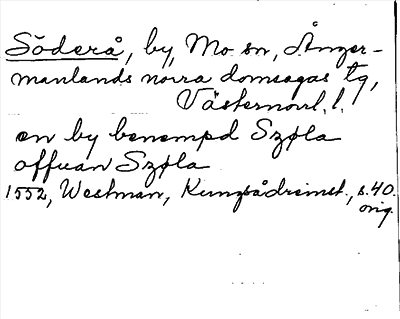 Söderå, by, Mo sn, Ånger-
manlands norra domsagas tg,
Västernorrl. l.
en by benempd Szøla
offuan Szøla
1552, Westman, Kungsådrainst., s. 40.
orig.